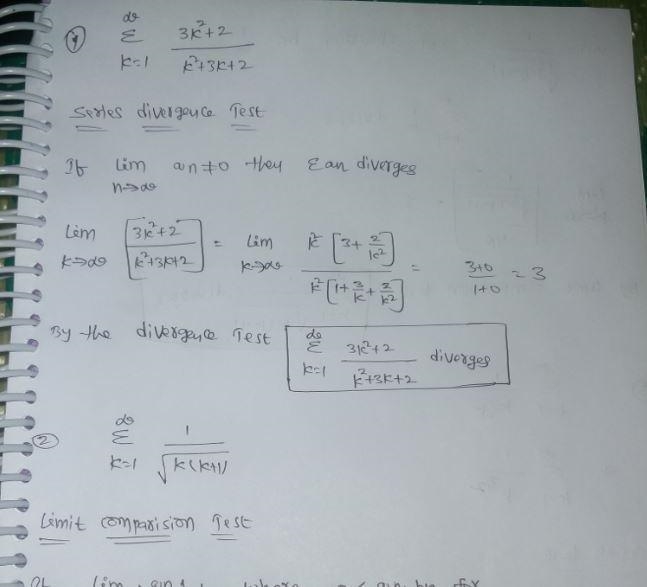 ① ∞ Σ k=1 3k²+2 / k²+3k+2
Series divergence Test
If lim n→∞ an≠0 then Σan diverges
Lim k→∞ [3k²+2 / k²+3k+2] = Lim k→∞ k²[3+2/k²] / k²[1+3/k+2/k²] = 3+0 / 1+0 = 3
By the divergence Test ∞ Σ k=1 3k²+2 / k²+3k+2 diverges
② ∞ Σ k=1 1 / √k(k+1)
Limit comparision Test